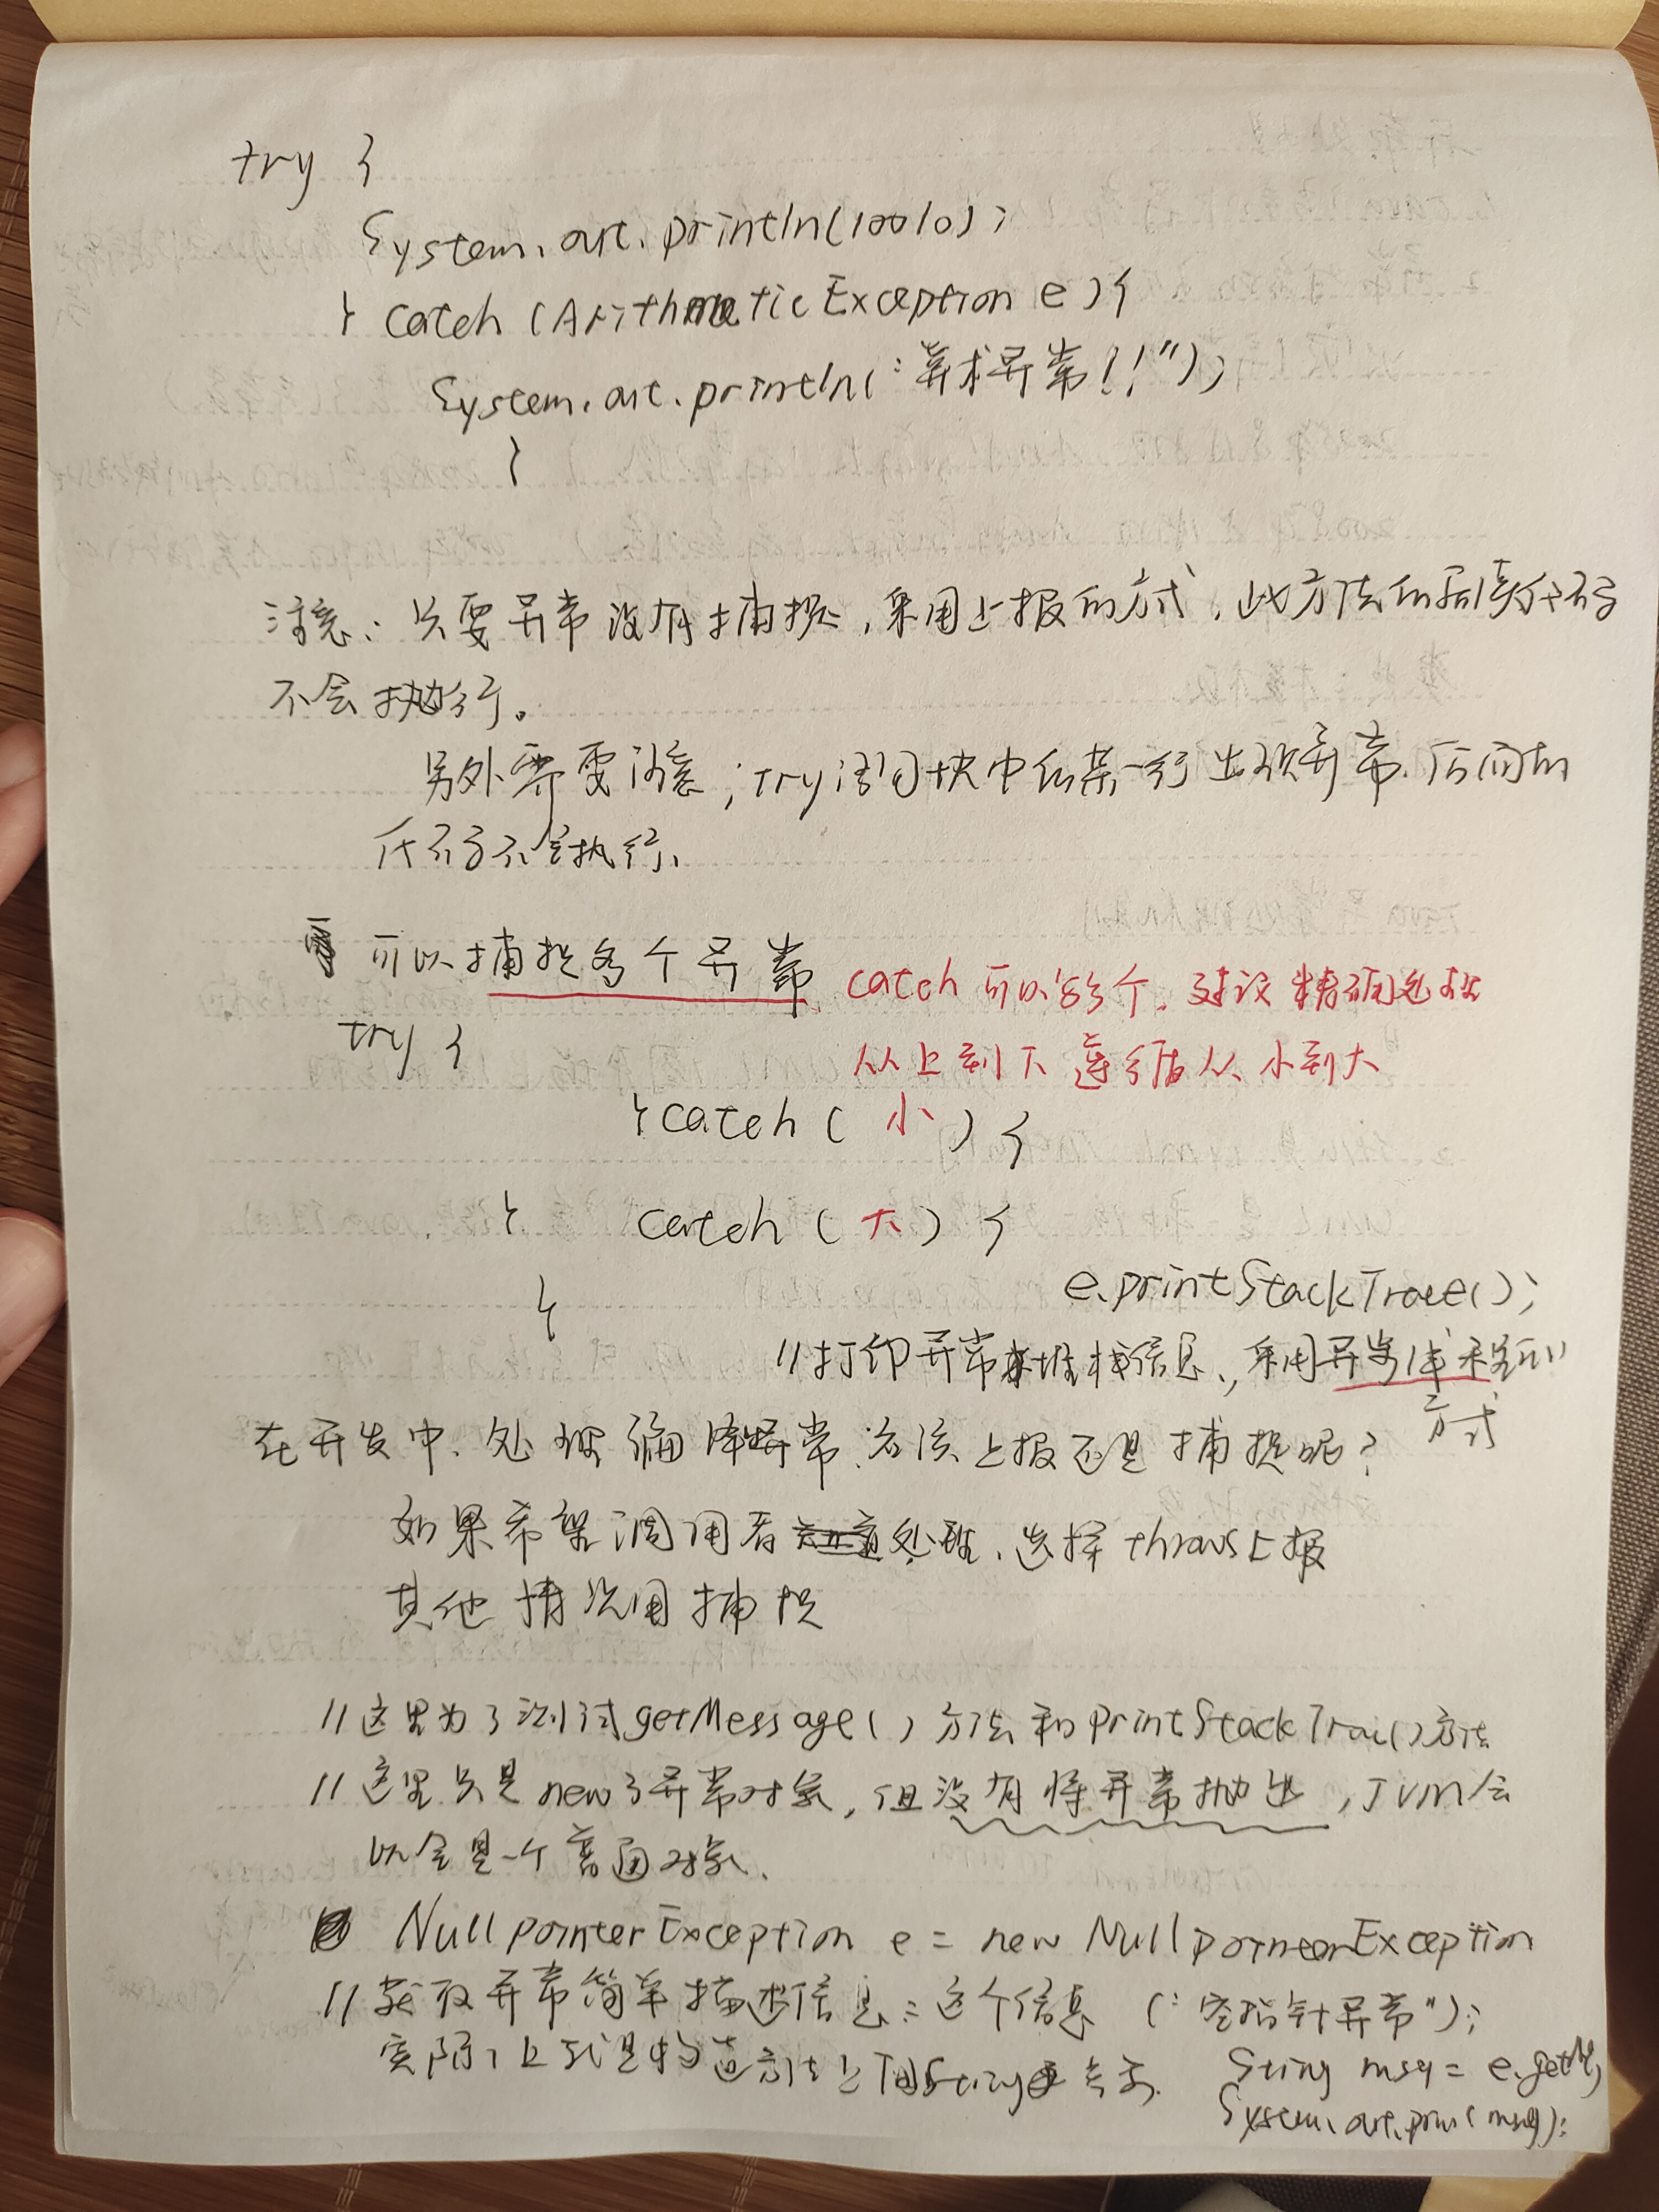 try {
System.out.println(100/0);
} catch (ArithmeticException e){
System.out.println("算术异常!!");
}
注意：只要异常没有捕捉,采用上报的方式,此方法的后续代码
不会执行。
另外需要注意；try语句块中的某一行出现异常.后面的
代码不会执行.
可以捕捉多个异常 catch可以写多个.建议精确处理
try { 从上到下 遵循从小到大
}catch(小){
} catch(大){
}
e.printStackTrace();
//打印异常堆栈信息,采用异步线程的
方式
在开发中.处理编译异常.应该上报还是捕捉呢?
如果希望调用者处理.选择throws上报
其他情况用捕捉
//这里为了测试getMessage()方法和printStackTrac()方法
//这里只是new了异常对象,但没有将异常抛出,JVM会
认为是一个普通对象.
NullpointerException e = new NullpointerException
//获取异常简单描述信息:这个信息 ("空指针异常");
实际上就是构造方法上面String参数.
Sting msg = e.getM
System.out.prin(msg);